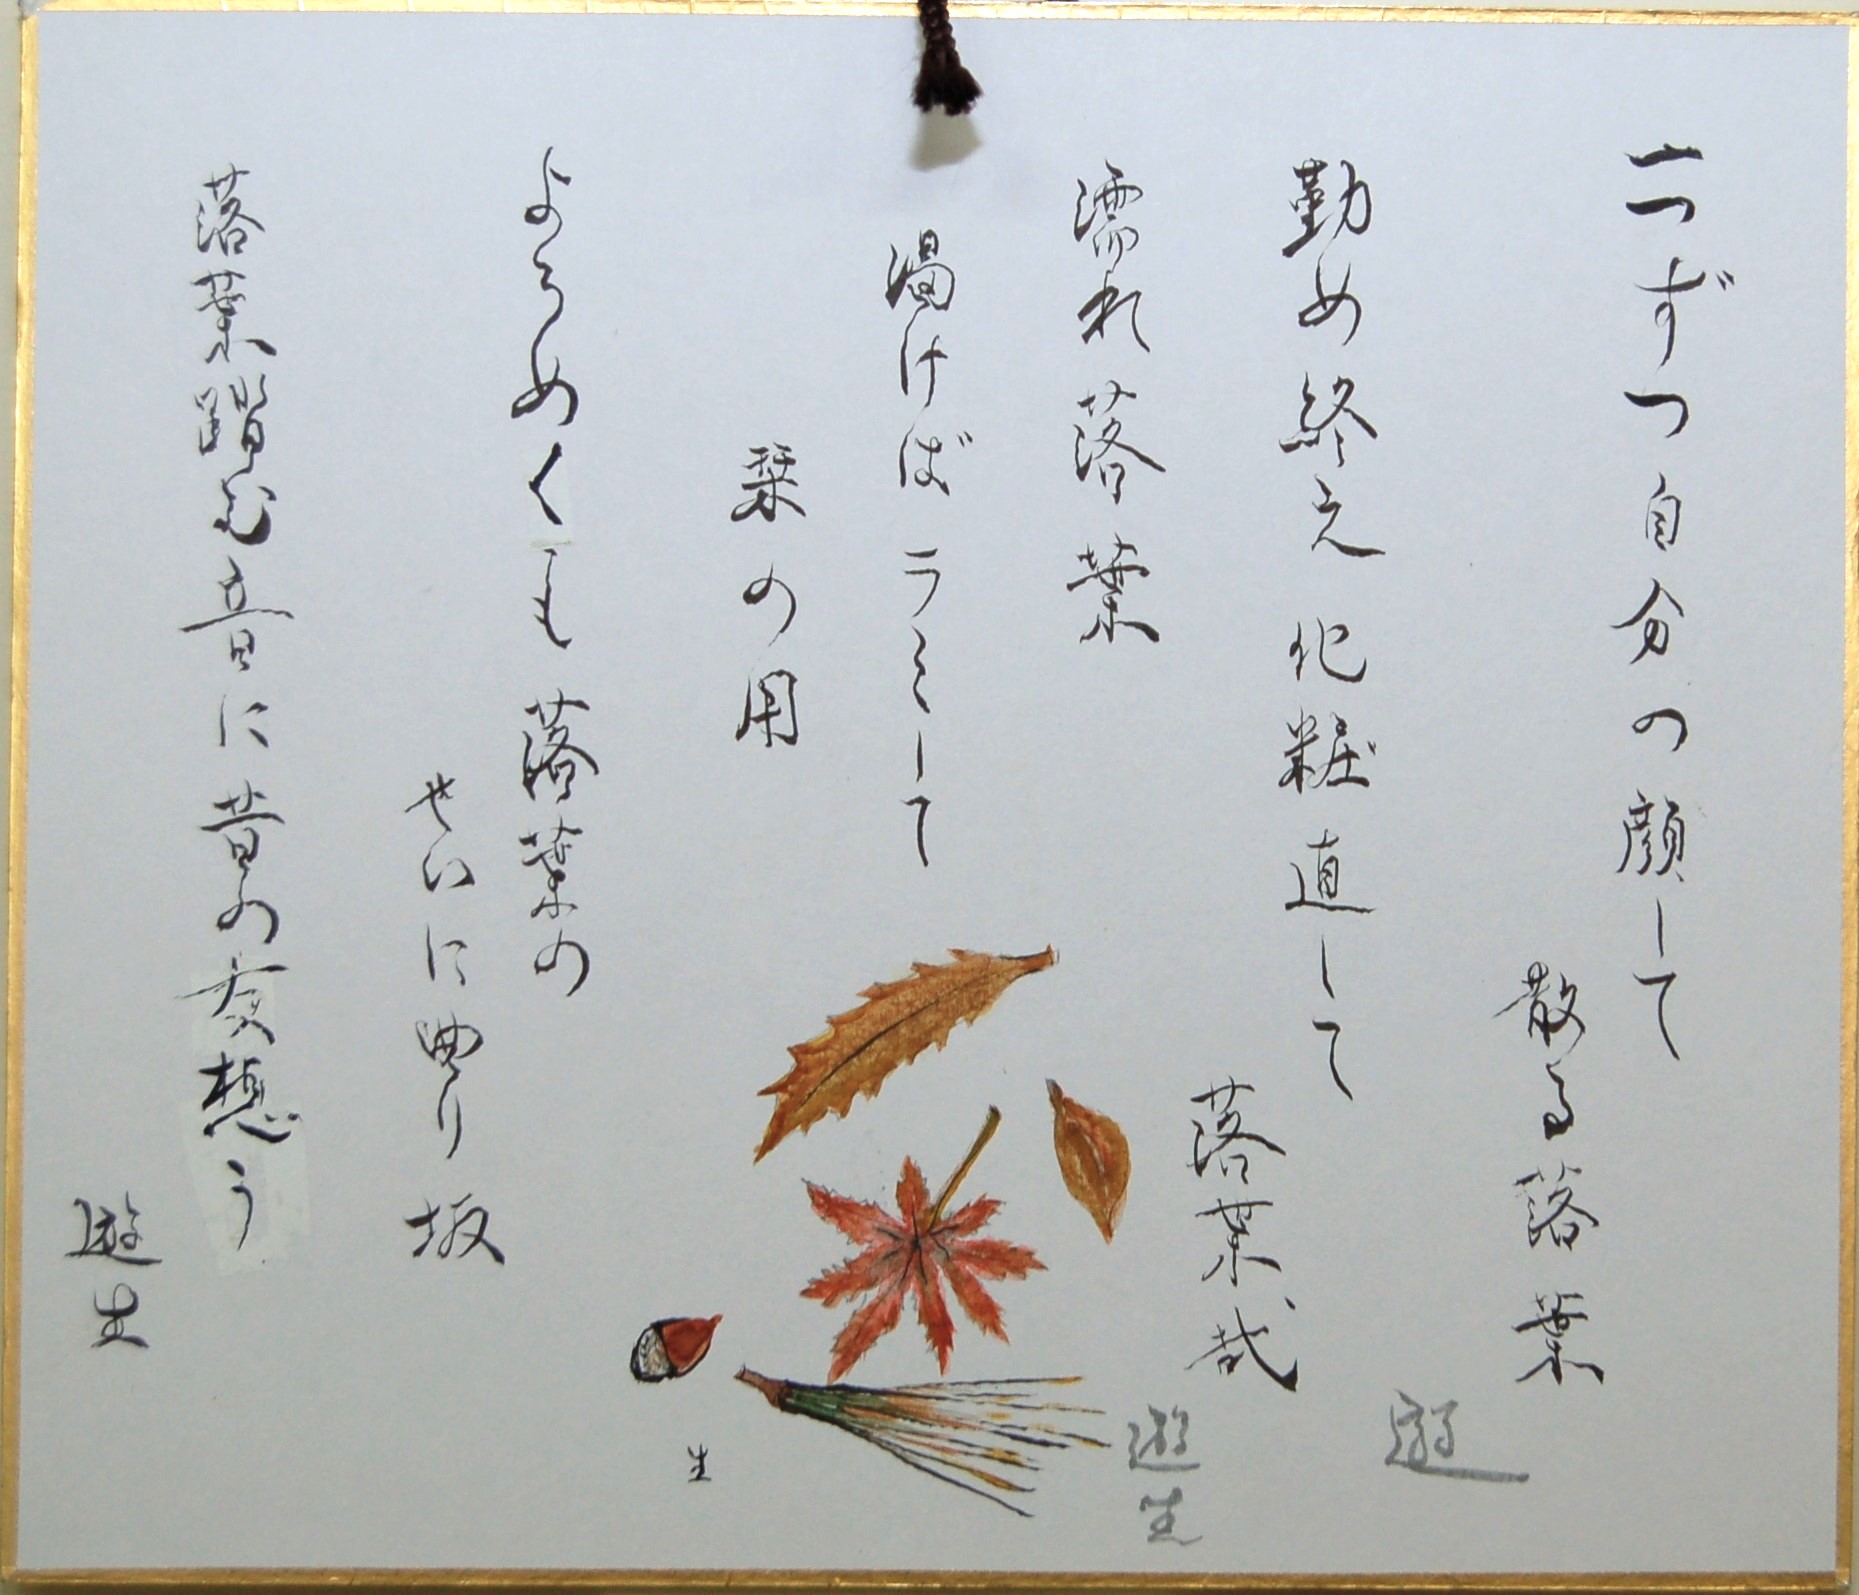 一つずつ自分の顔して
散る落葉
遊
勤め終え化粧直して
落葉哉
遊生
濡れ落葉
渇けばラミして
栞の用
生
よろめくも落葉の
せいに曲り坂
落葉踏む音に昔の友想う
遊生